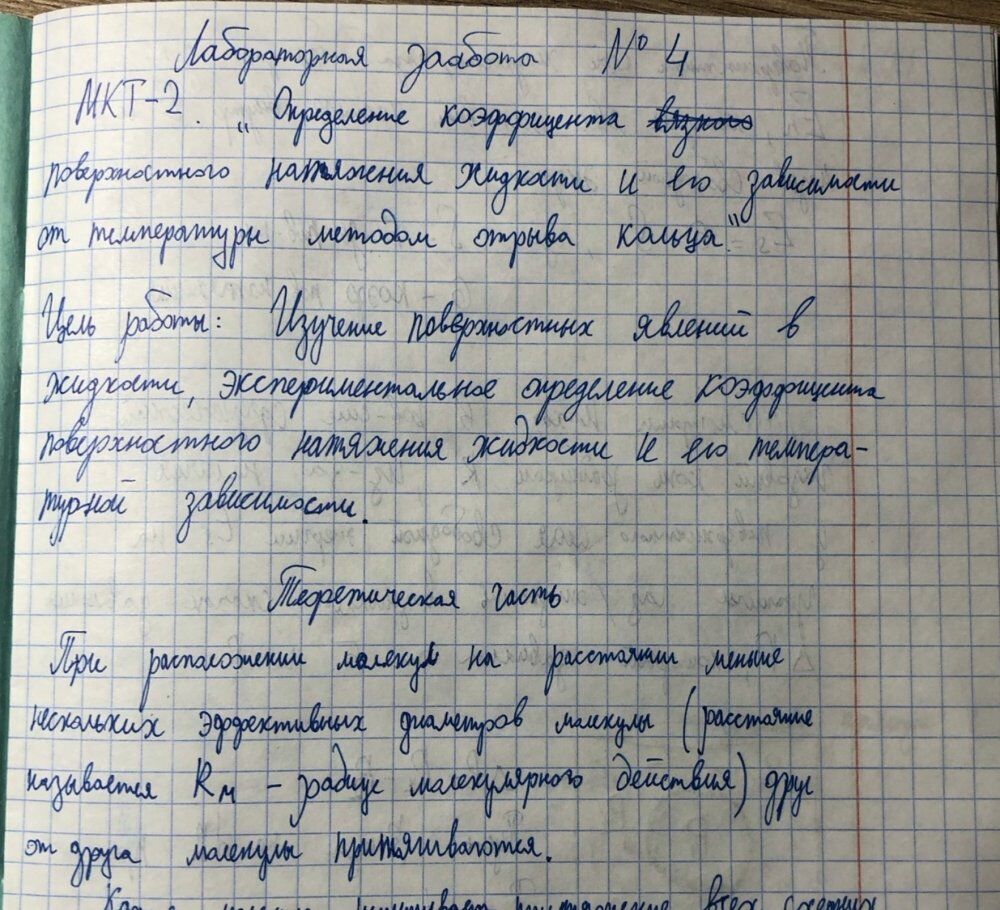 Лабораторная работы № 4
МКТ-2. „Определение коэффицента
поверхностного натяжения жидкости и его зависимости
от температуры методом отрыва кольца."
Цель работы: Изучение поверхностных явлений в
жидкости, экспериментальное определение коэффицента
поверхностного натяжения жидкости и его темпера-
турной зависимости.
Теоретическая часть
При расположении молекул на расстоянии меньше
нескольких эффективных диаметров молекулы (расстояние
называется Rм - радиус молекулярного действия) друг
от друга молекулы притягиваются.
всех